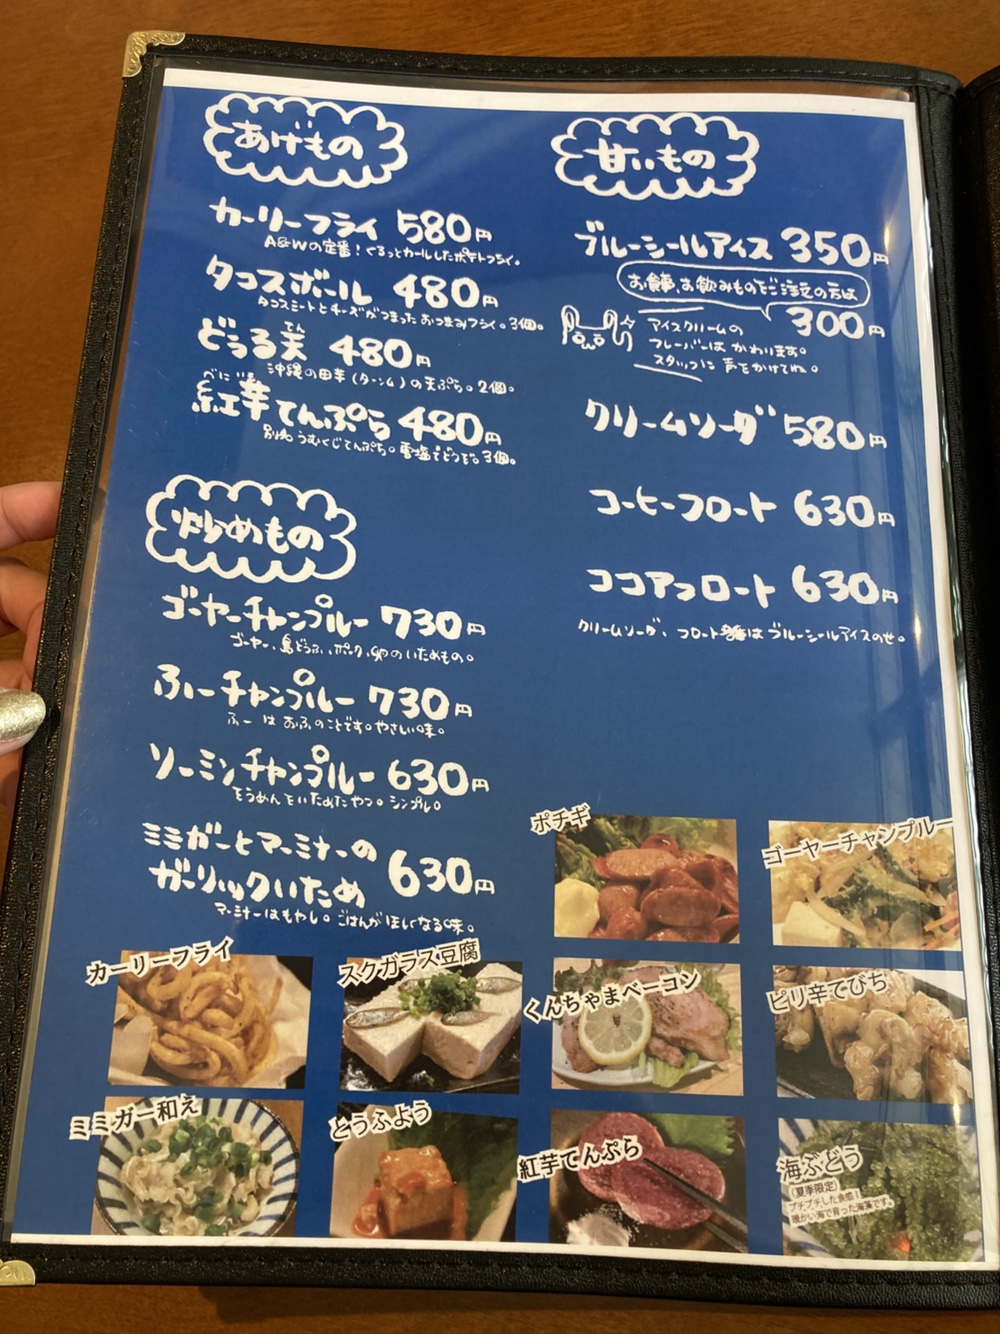 あげもの
カーリーフライ 580円
A&Wの定番！くるっとカールしたポテトフライ。
タコスボール 480円
タコスミートとチーズがつまったおつまみフライ。3個。
どぅる天 480円
てん
沖縄の田芋(ターンム)の天ぷら。2個。
べに いも
紅芋てんぷら 480円
別名うむくじてんぷら。雪塩でどうぞ。3個。
炒めもの
ゴーヤーチャンプルー 730円
ゴーヤー、島どうふ、ポーク、卵のいためもの。
ふーチャンプルー 730円
ふーはおふのことです。やさしい味。
ソーミンチャンプルー 630円
そうめんをいためたやつ。シンプル。
ミミガーとマーミナーの
ガーリックいため 630円
マーミナーはもやし。ごはんがほしくなる味。
甘いもの
ブルーシールアイス 350円
お食事、お飲みものをご注文の方は
300円
アイスクリームの
フレーバーはかわります。
スタッフに声をかけてね。
クリームソーダ 580円
コーヒーフロート 630円
ココアフロート 630円
クリームソーダ、フロートはブルーシールアイスのせ。
ポチギ
ゴーヤーチャンプルー
カーリーフライ
スクガラス豆腐
くんちゃまベーコン
ピリ辛てびち
ミミガー和え
とうふよう
紅芋てんぷら
海ぶどう
(夏季限定)
プチプチした食感！
暖かい海で育った海藻です。